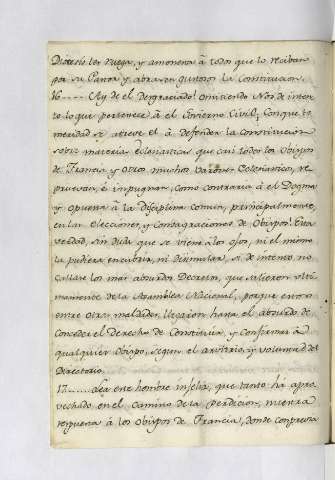 Diocesis les ruega, y amonesta à todos que lo reciban
por su Pastor, y abrasen gustosos la Constitucion.
16----- Ay de el Desgraciado! omitiendo Nos de inten-
to lo que pertenece à el Govierno Civil; Con que te-
meridad se atreve el à defender la Constitucion
sobre materias eclesiasticas que casi todos los Obispos
de Francia y otros muchos Varones Eclesiasticos, re-
prueban, è impugnan, como contraria à el Dogma
y opuesta à la disciplina comun, principalmente,
en las elecciones, y consagraciones de Obispos! Esta
verdad, sin duda que se viene à los ojos, ni el mismo
la pudiera encubrir, ni disimular, si de intento no
callare los mas absurdos Decretos, que salieron ulti-
mamente de la Asamblea Nacional, porque entre
otras maldades, llegaron hasta el absurdo de
conceder el derecho de Constituir, y confirmar à
qualquier Obispo, segun el arvitrio, y voluntad del
Directorio.
17------ Lea este hombre infeliz, que tanto ha apro-
vechado en el Camino de la Perdicion, nuestra
respuesta à los Obispos de Francia, donde con presta